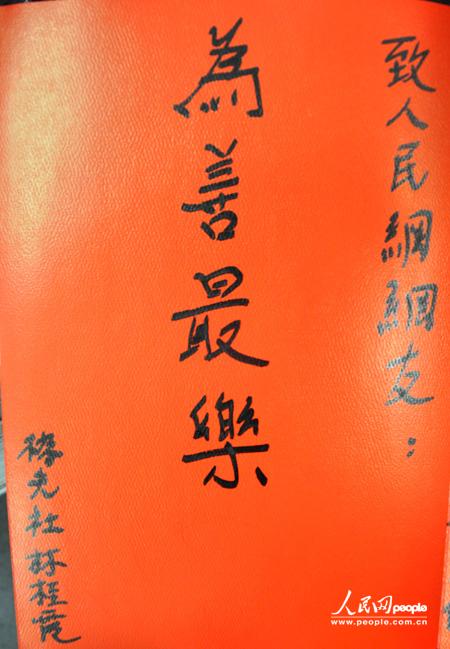 致人民網網友：
為善最樂
林桂霞
人民网 people
www.people.com.cn